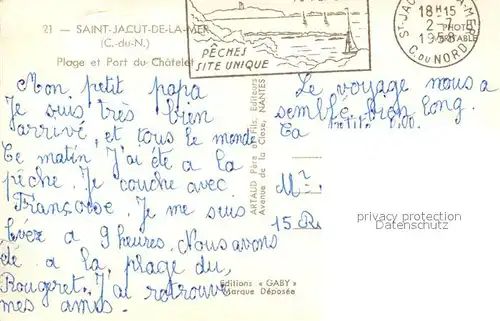 21 — SAINT-JACUT-DE-LA-MER
(C.-du-N.)
Plage et Port du Châtelet
PÊCHES
SITE UNIQUE
18H15
2-7
1958
C. DU NORD
PHOTO
VÉRITABLE
Mon petit papa
Je suis très bien
arrivé, et tous le monde
Ce matin J'ai été a la
pêche. Je couche avec
Françoise. Je me suis
levée a 9 heures. Nous avons
été a la plage du
Rougeret. J'ai retrouvé
mes amis.
ARTAUD Père et Fils, Editeurs
Avenue de la Close, NANTES
Le voyage nous a
semblé bien long.
Ta petite
Mr
15 R
privacy protection
Datenschutz
Editions « GABY »
Marque Déposée